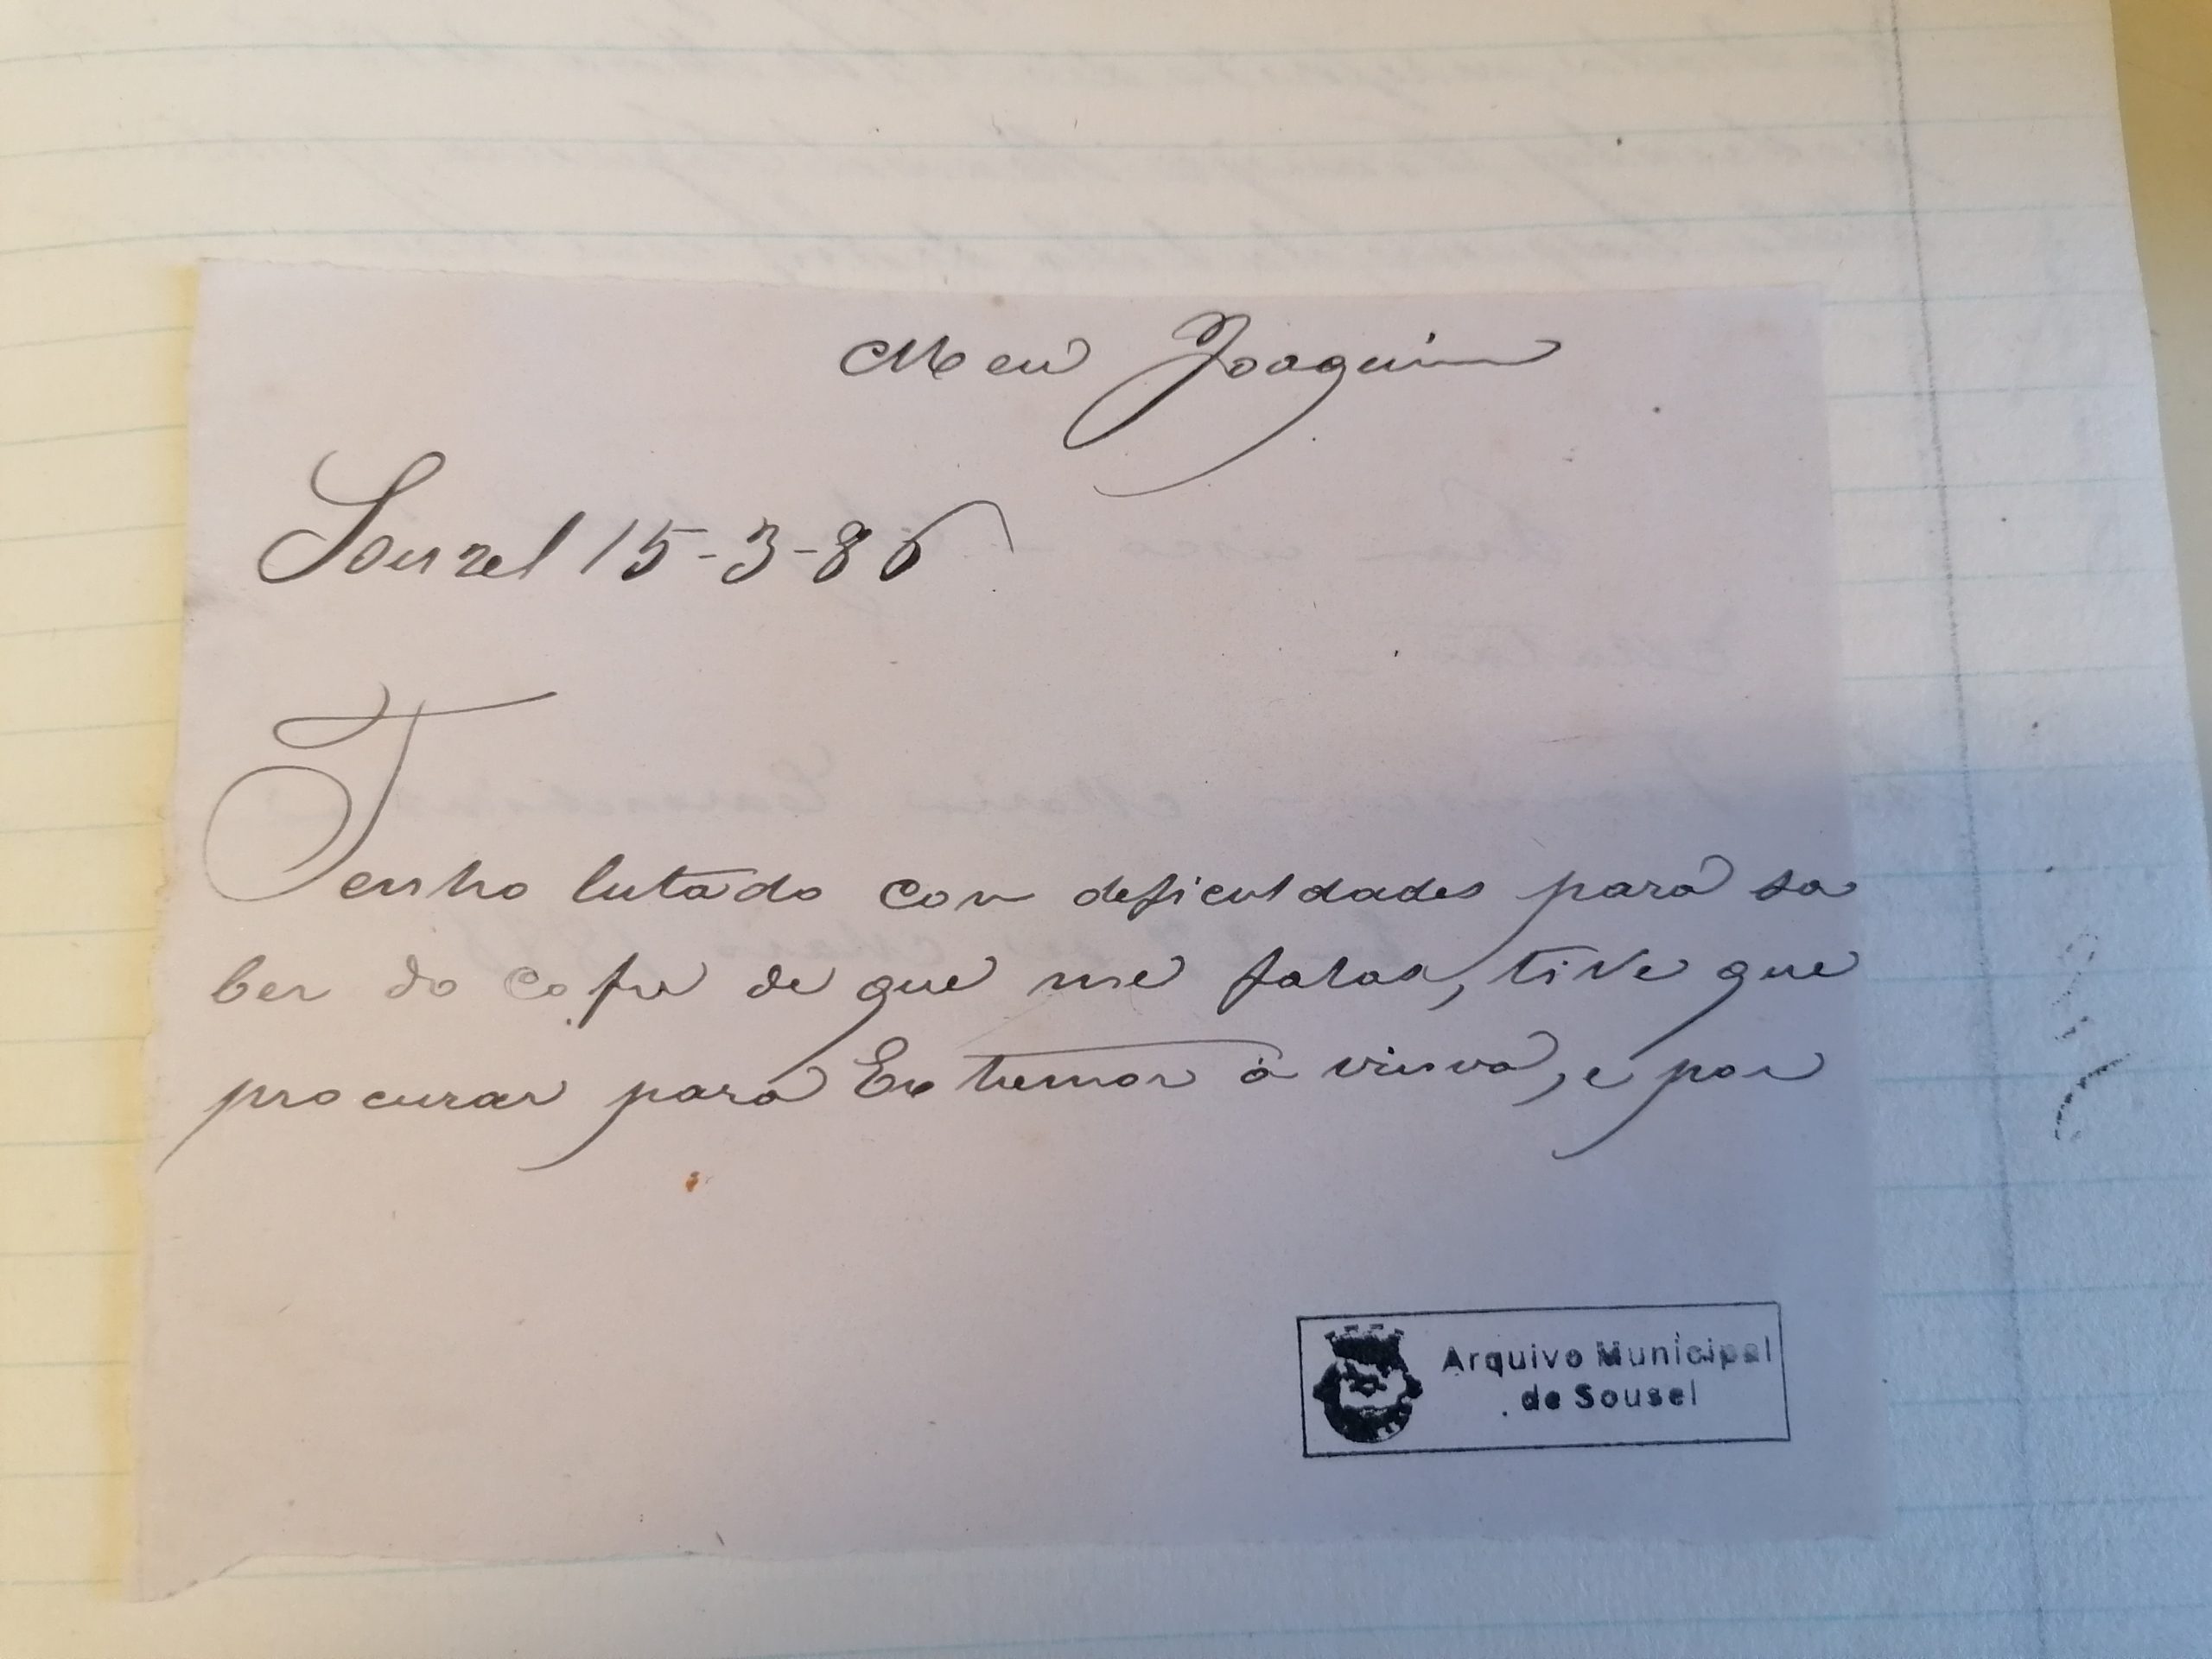 Meu Joaquim
Souzel 15-3-86
Tenho lutado com deficuldades para sa
ber do cofre de que me falas, tive que
procurar para Extremoz a viuva, e por
Arquivo Municipal
de Sousel